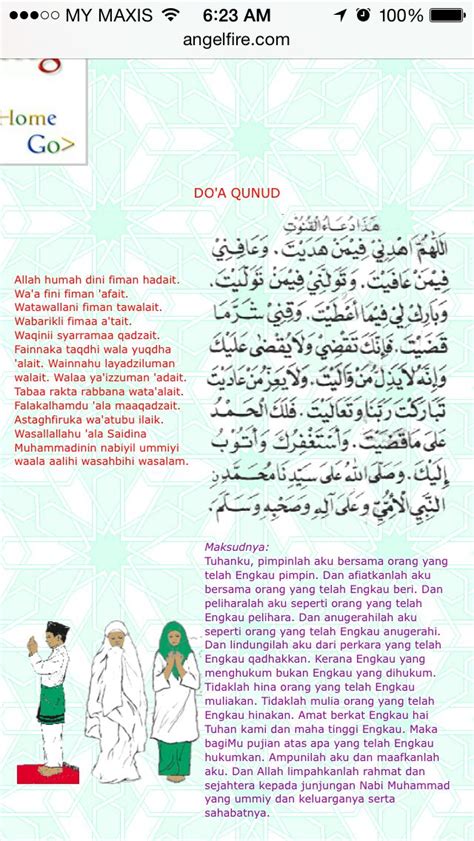 MY MAXIS 6:23 AM 100%
angelfire.com
g
Home
Go>
DO'A QUNUD
هَذَا دُعَاءُ الْقُنُوْتِ
اَللّٰهُمَّ اهْدِنِيْ فِيْمَنْ هَدَيْتَ. وَعَافِنِيْ
فِيْمَنْ عَافَيْتَ. وَتَوَلَّنِيْ فِيْمَنْ تَوَلَّيْتَ.
وَبَارِكْ لِيْ فِيْمَا أَعْطَيْتَ. وَقِنِيْ شَرَّمَا
قَضَيْتَ. فَإِنَّكَ تَقْضِيْ وَلَايُقْضَى عَلَيْكَ
وَإِنَّهُ لَايَذِلُّ مَنْ وَالَيْتَ. وَلَايَعِزُّمَنْ عَادَيْتَ
تَبَارَكْتَ رَبَّنَاوَتَعَالَيْتَ. فَلَكَ الْحَمْدُ
عَلَى مَاقَضَيْتَ. وَأَسْتَغْفِرُكَ وَأَتُوْبُ
إِلَيْكَ. وَصَلَّى اللهُ عَلَى سَيِّدِنَا مُحَمَّدٍ
النَّبِيِّ الْأُمِّيِّ وَعَلَى آلِهِ وَصَحْبِهِ وَسَلَّمَ.
Allah humah dini fiman hadait.
Wa'a fini fiman 'afait.
Watawallani fiman tawalait.
Wabarikli fimaa a'tait.
Waqinii syarramaa qadzait.
Fainnaka taqdhi wala yuqdha
'alait. Wainnahu layadziluman
walait. Walaa ya'izzuman 'adait.
Tabaa rakta rabbana wata'alait.
Falakalhamdu 'ala maaqadzait.
Astaghfiruka wa'atubu ilaik.
Wasallallahu 'ala Saidina
Muhammadinin nabiyil ummiyi
waala aalihi wasahbihi wasalam.
Maksudnya:
Tuhanku, pimpinlah aku bersama orang yang
telah Engkau pimpin. Dan afiatkanlah aku
bersama orang yang telah Engkau beri. Dan
peliharalah aku seperti orang yang telah
Engkau pelihara. Dan anugerahilah aku
seperti orang yang telah Engkau anugerahi.
Dan lindungilah aku dari perkara yang telah
Engkau qadhakkan. Kerana Engkau yang
menghukum bukan Engkau yang dihukum.
Tidaklah hina orang yang telah Engkau
muliakan. Tidaklah mulia orang yang telah
Engkau hinakan. Amat berkat Engkau hai
Tuhan kami dan maha tinggi Engkau. Maka
bagiMu pujian atas apa yang telah Engkau
hukumkan. Ampunilah aku dan maafkanlah
aku. Dan Allah limpahkanlah rahmat dan
sejahtera kepada junjungan Nabi Muhammad
yang ummiy dan keluarganya serta
sahabatnya.